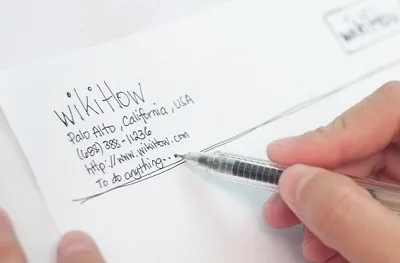 wikiHow
wikiHow
Palo Alto, California, USA
(688) 388-11236
http://www.wikihow.com
To do anything...